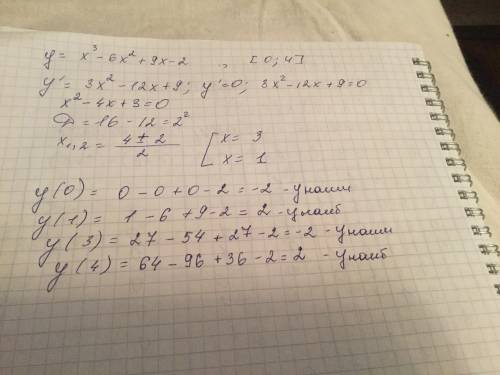 y = x³ - 6x² + 9x - 2 , [0; 4]
y' = 3x² - 12x + 9; y' = 0; 3x² - 12x + 9 = 0
x² - 4x + 3 = 0
D = 16 - 12 = 2²
x₁,₂ = (4 ± 2)/2 [ x = 3
x = 1
y(0) = 0 - 0 + 0 - 2 = -2 - y наим
y(1) = 1 - 6 + 9 - 2 = 2 - y наиб
y(3) = 27 - 54 + 27 - 2 = -2 - y наим
y(4) = 64 - 96 + 36 - 2 = 2 - y наиб